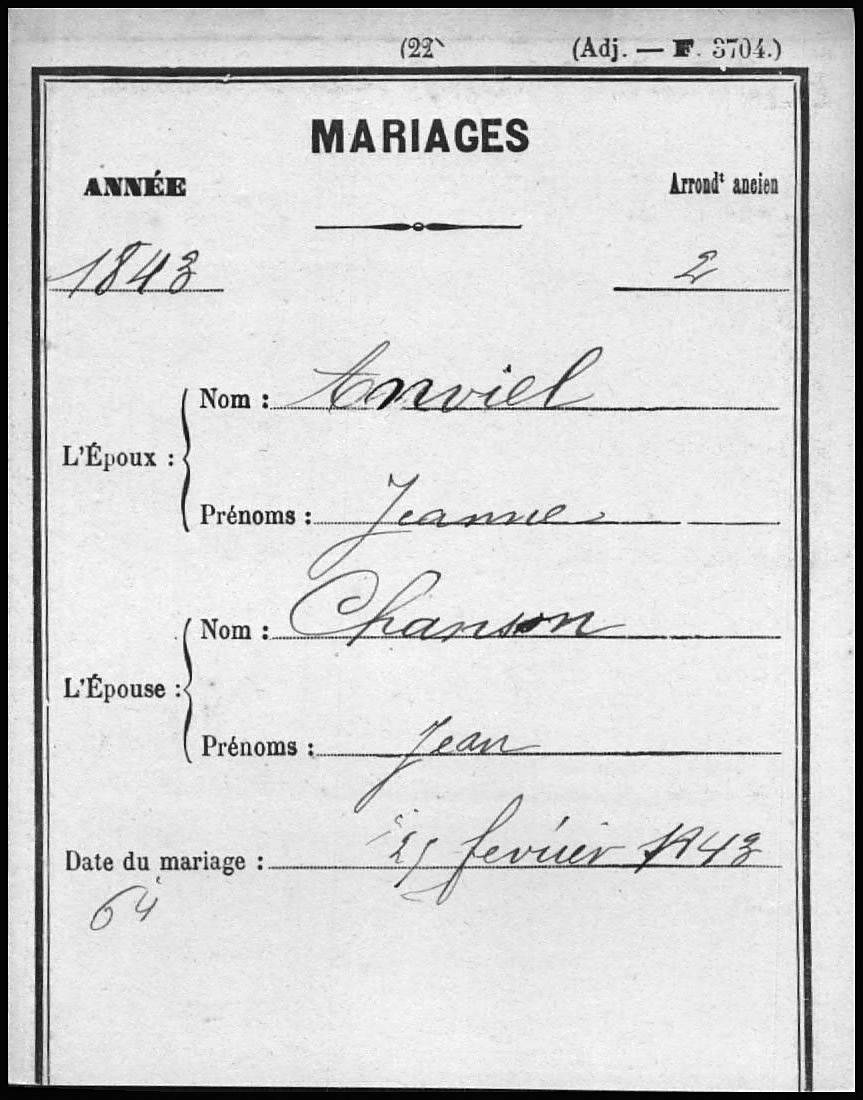 (22) (Adj. — F. 3704.)
MARIAGES
ANNÉE Arrondt ancien
1843 2
L'Époux :
Nom : Anviel
Prénoms : Jeanne
L'Épouse :
Nom : Chanson
Prénoms : Jean
Date du mariage : février 1843